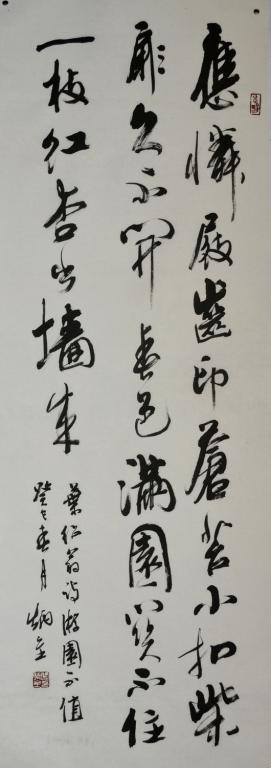 應憐屐齒印蒼苔小扣柴
扉久不開春色滿園關不住
一枝紅杏出墻來
葉紹翁詩游園不值
癸巳春月炳